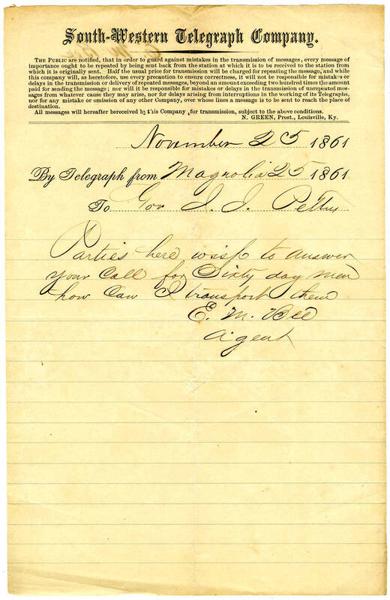 South-Western Telegraph Company.
THE PUBLIC are notified, that in order to guard against mistakes in the transmission of messages, every message of
importance ought to be repeated by being sent back from the station at which it is to be received to the station from
which it is originally sent. Half the usual price for transmission will be charged for repeating the message, and while
this company will, as heretofore, use every precaution to ensure correctness, it will not be responsible for mistakes or
delays in the transmission or delivery of repeated messages, beyond an amount exceeding two hundred times the amount
paid for sending the message; nor will it be responsible for mistakes or delays in the transmission of unrepeated mes-
sages from whatever cause they may arise, nor for delays arising from interruptions in the working of its Telegraphs,
nor for any mistake or omission of any other Company, over whose lines a message is to be sent to reach the place of
destination.
All messages will hereafter bereceived by this Company for transmission, subject to the above conditions.
N. GREEN, Prest., Louisville, Ky.
November 25 1861
By Telegraph from Magnolia 25 1861
To Gov J. J. Pettus
Parties here wish to answer
your Call for Sixty day men
how Can I transport them
E. M. Bee
Agent